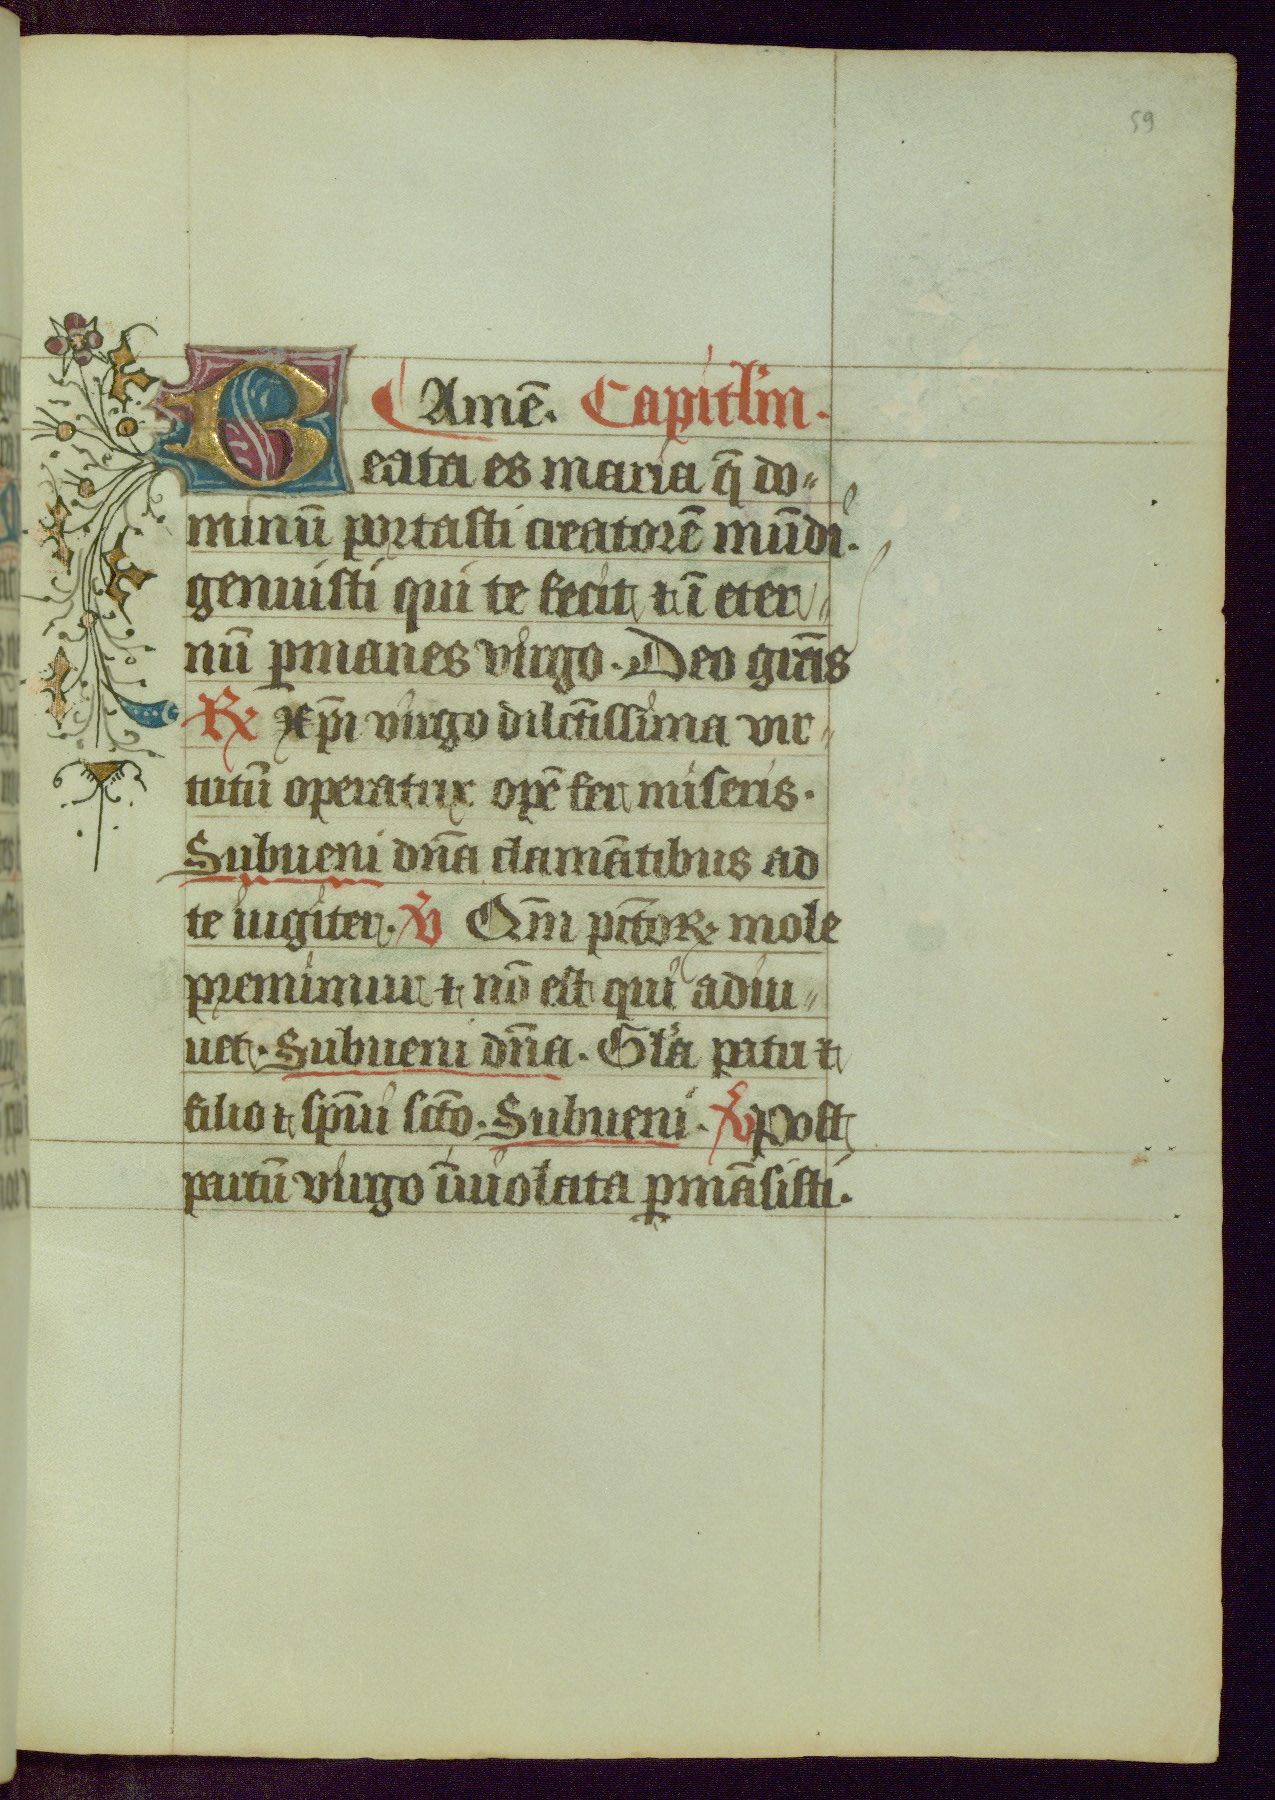 59
Amē. Capitl̄m.
Beata es maria q̄ do-
minū portasti creatorē mūdi.
genuisti qui te fecit ⁊ ī eter-
nū ꝑmanes virgo. Deo gr̄as
℟ xp̄i virgo dilc̄tissima vir-
tutū operatrix opē fer miseris.
Subueni dn̄a clamātibus ad
te iugiter. ℣ Qm̄ pc̄toꝝ mole
premimur ⁊ nō est qui adiu-
uet. Subueni dn̄a. Gl̄a patri ⁊
filio ⁊ sp̄ui sc̄to. Subueni. ℣ Post
partū virgo īuiolata ꝑmāsisti.